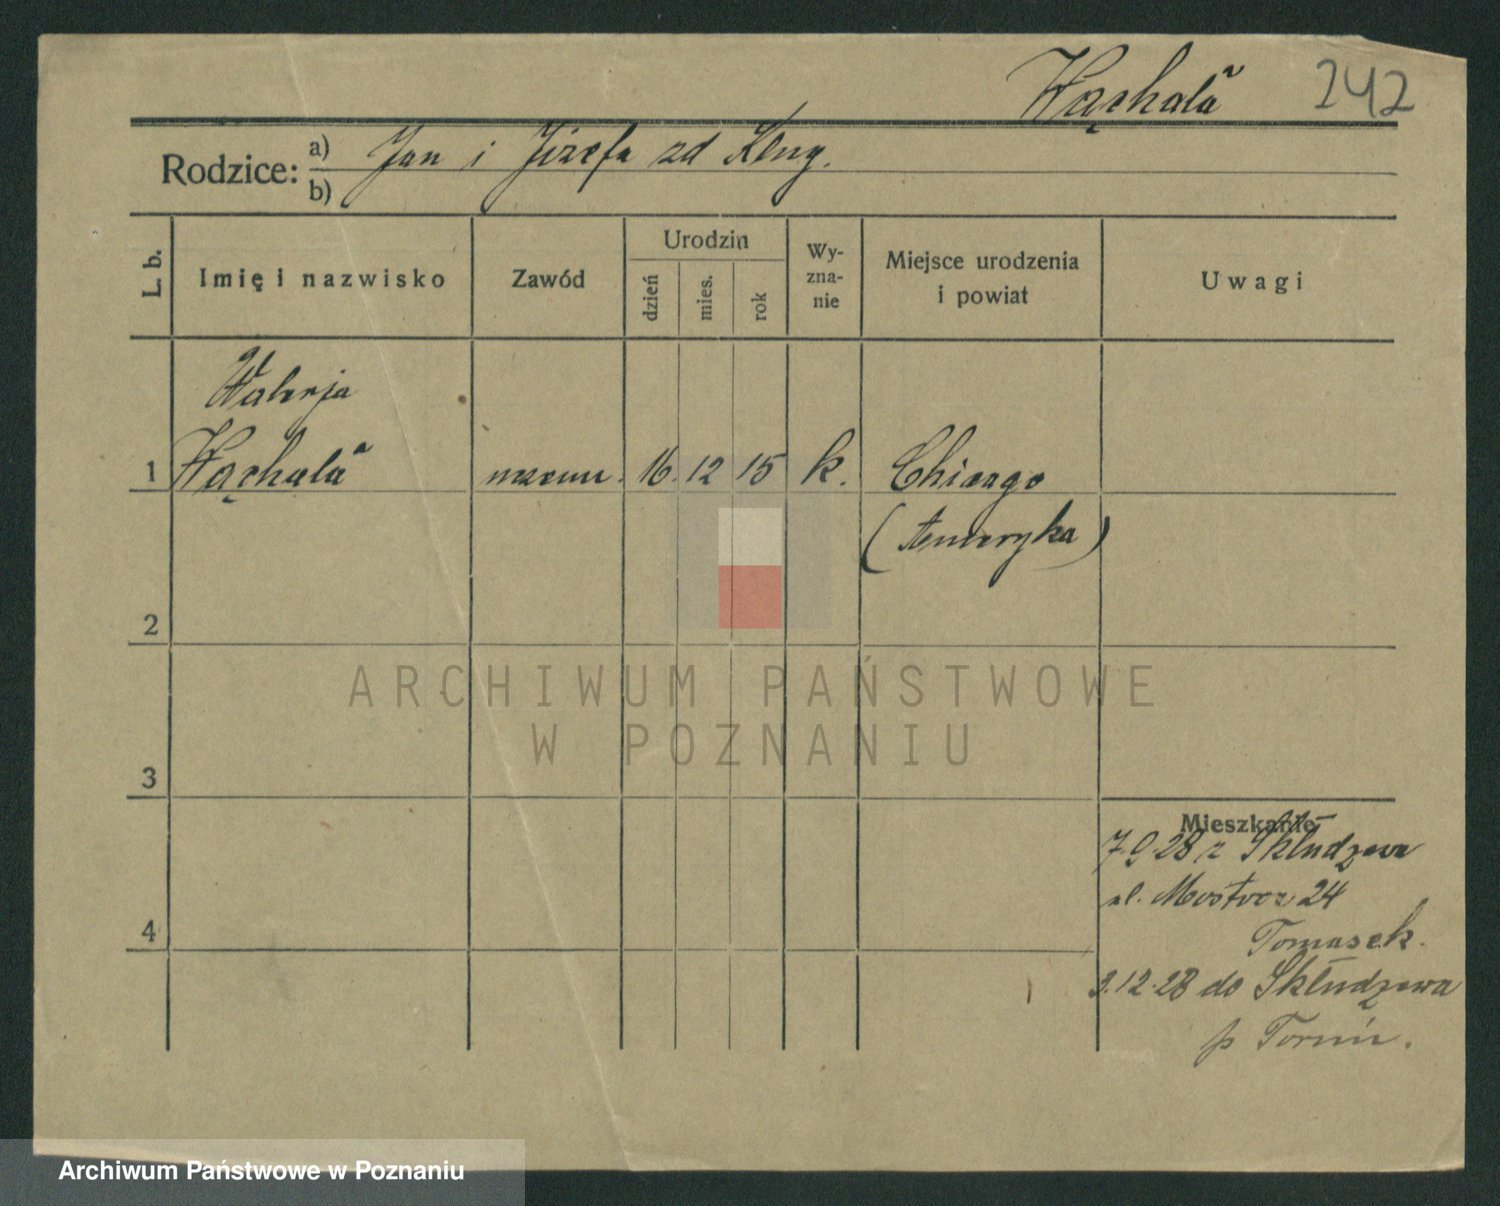 Wąchała 242
Rodzice: a) Jan i Józefa zd Kling.
b)
L. b.
Imię i nazwisko
Zawód
Urodzin
dzień
mies.
rok
Wy-
zna-
nie
Miejsce urodzenia
i powiat
Uwagi
Walerja
1 Wąchała uczenn. 16. 12 15 k. Chicago
(Ameryka)
2
3
4
Mieszkanie
7.9.28 z Skłudzewa
ul. 24
Tomasek.
3.12.28 do Skłudzewa
p Toruń.
ARCHIWUM PAŃSTWOWE
W POZNANIU
Archiwum Państwowe w Poznaniu